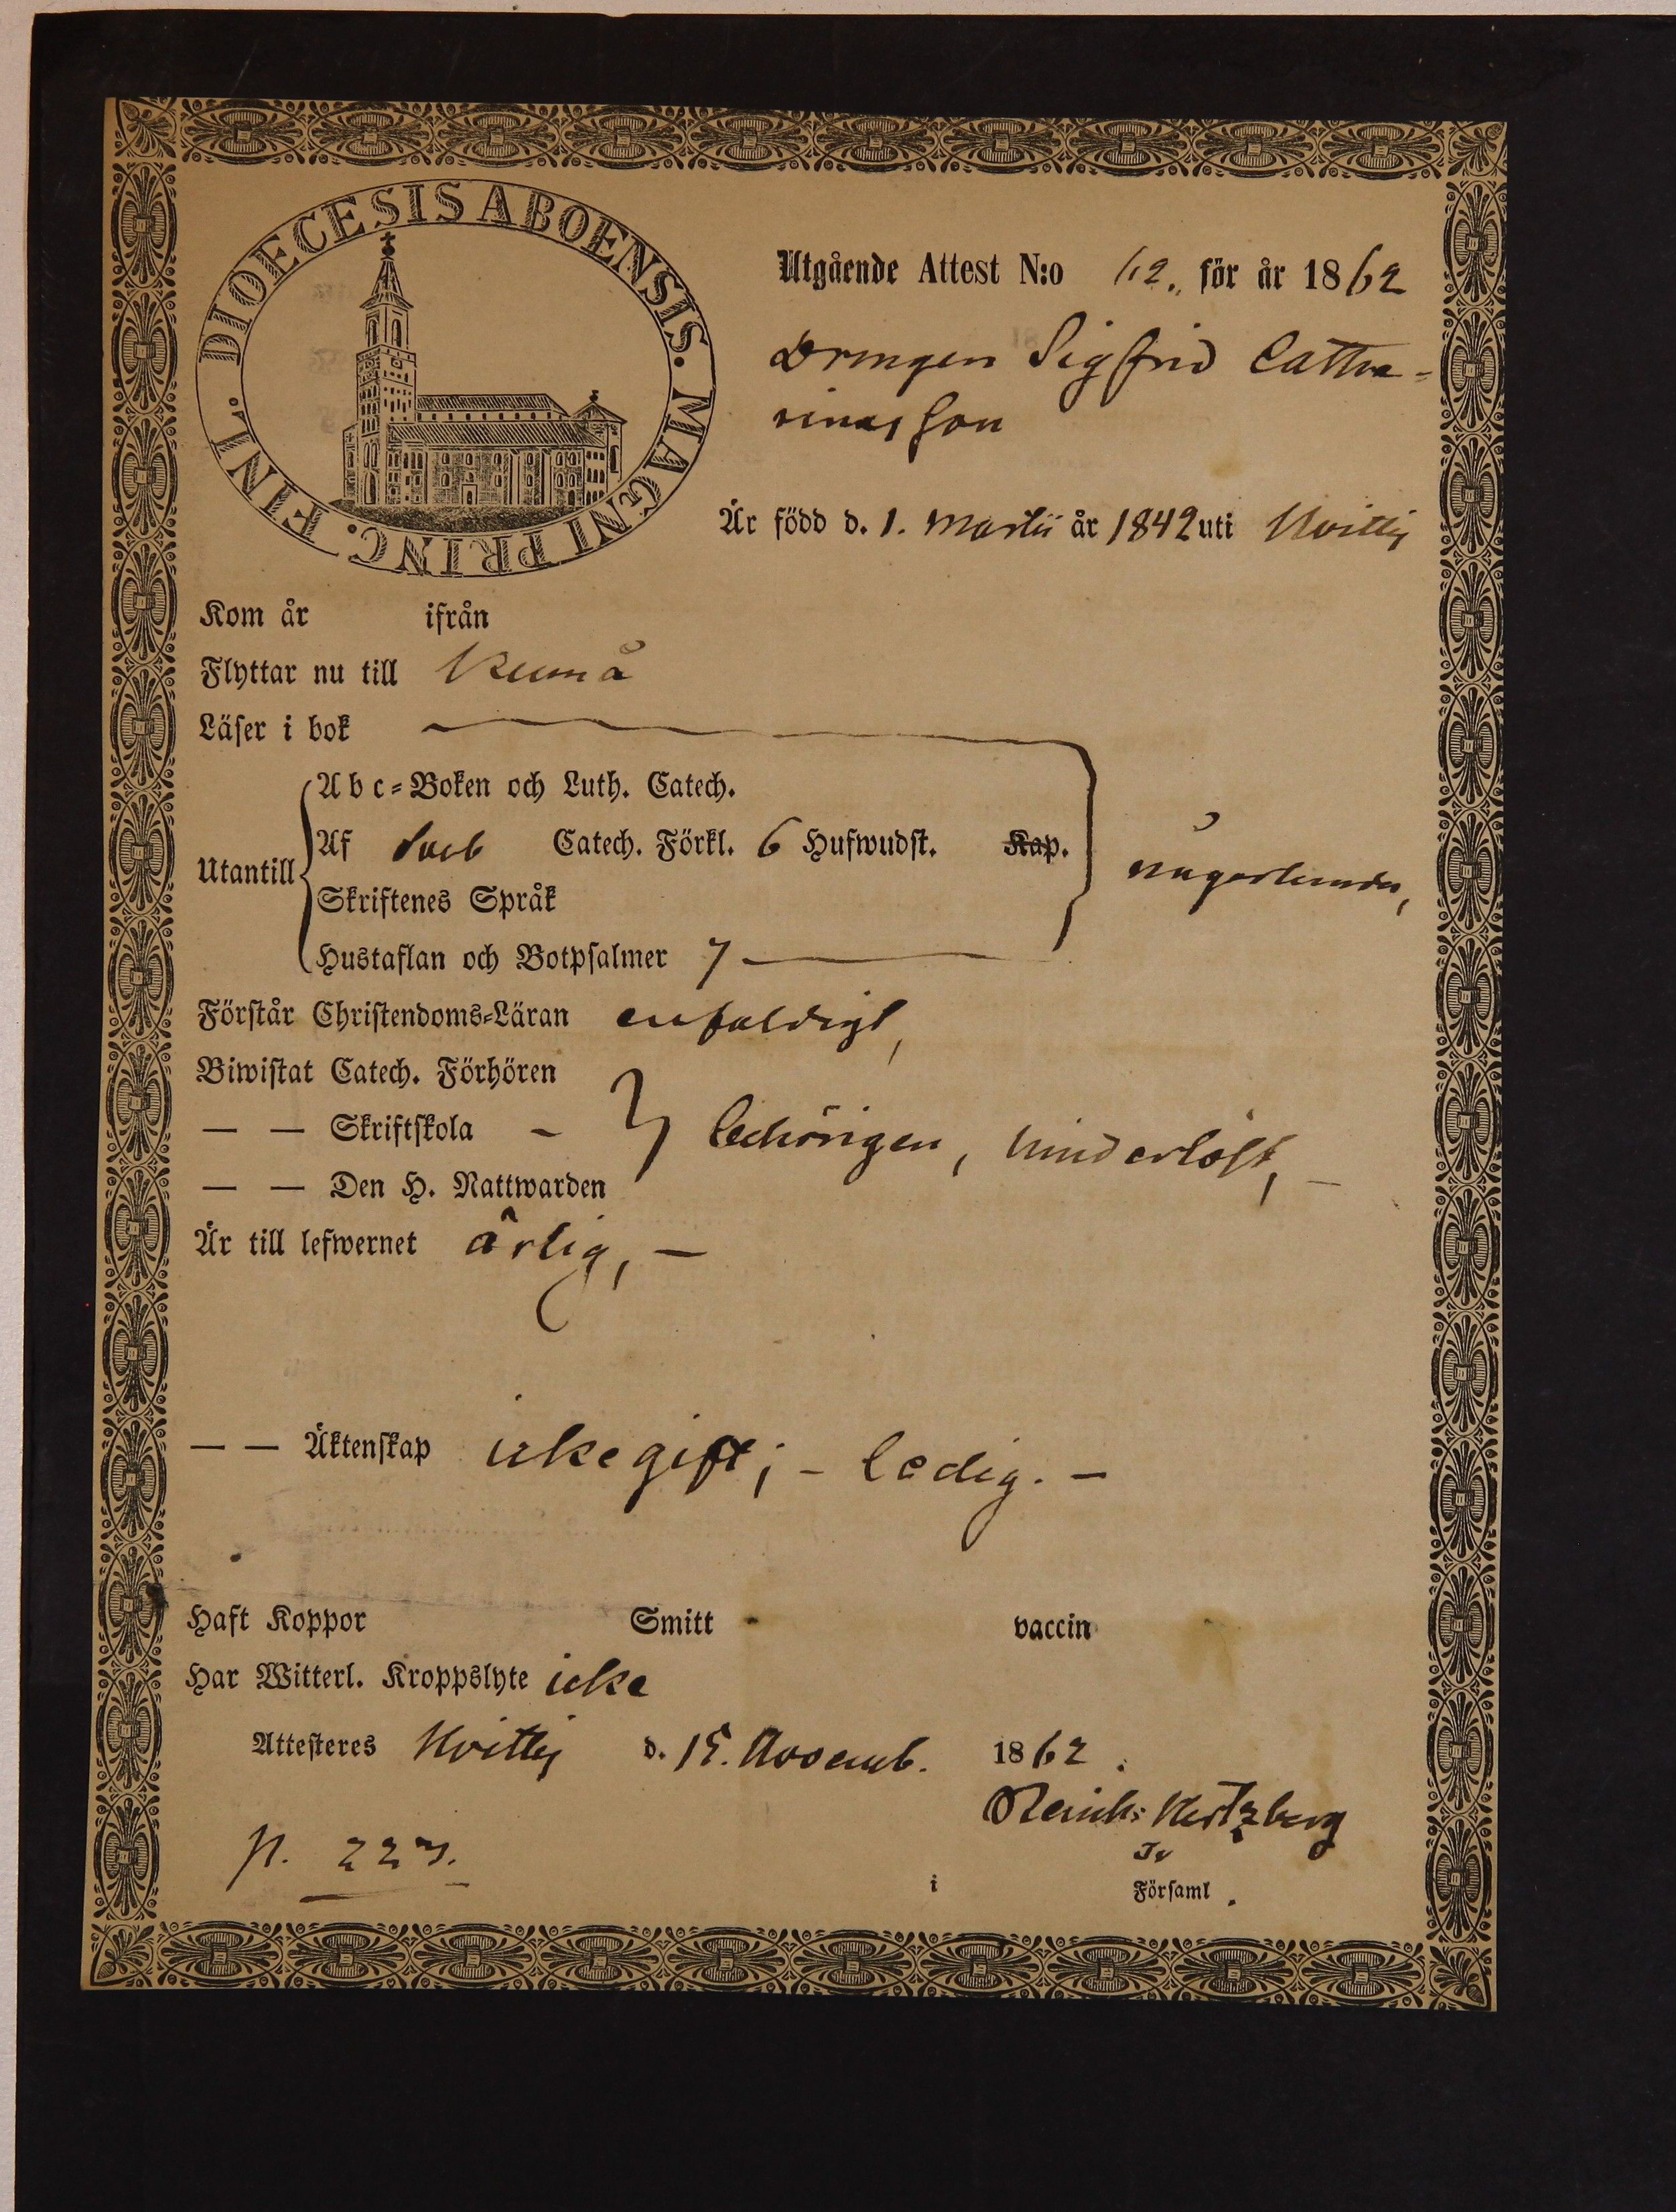 DIOECESIS ABOENSIS. MAGNI PRINC. FINL.
Utgående Attest N:o 62. för år 1862
Drengen Sigfrid Catha-
rinasson
Är född d. 1. Martii år 1842 uti Hvittis
Kom år ifrån
Flyttar nu till Kumå
Läser i bok
Abc-Boken och Luth. Catech.
Utantill Af Sveb Catech. Förkl. 6 Hufwudst. Kap. någorlunda,
Skriftenes Språk
Hustaflan och Botpsalmer 7 —
Förstår Christendoms-Läran enfaldigt,
Biwistat Catech. Förhören
— — Skriftskola - behörigen, hinderlöst, —
— — Den H. Nattwarden
Är till lefwernet ärlig, —
— — Äktenskap icke gift; - ledig. —
Haft Koppor Smitt vaccin
Har Witterl. Kroppslyte icke
Attesteres Hvittis d. 15. Novemb. 1862.
Hertzberg
p. 227.
i Församl.